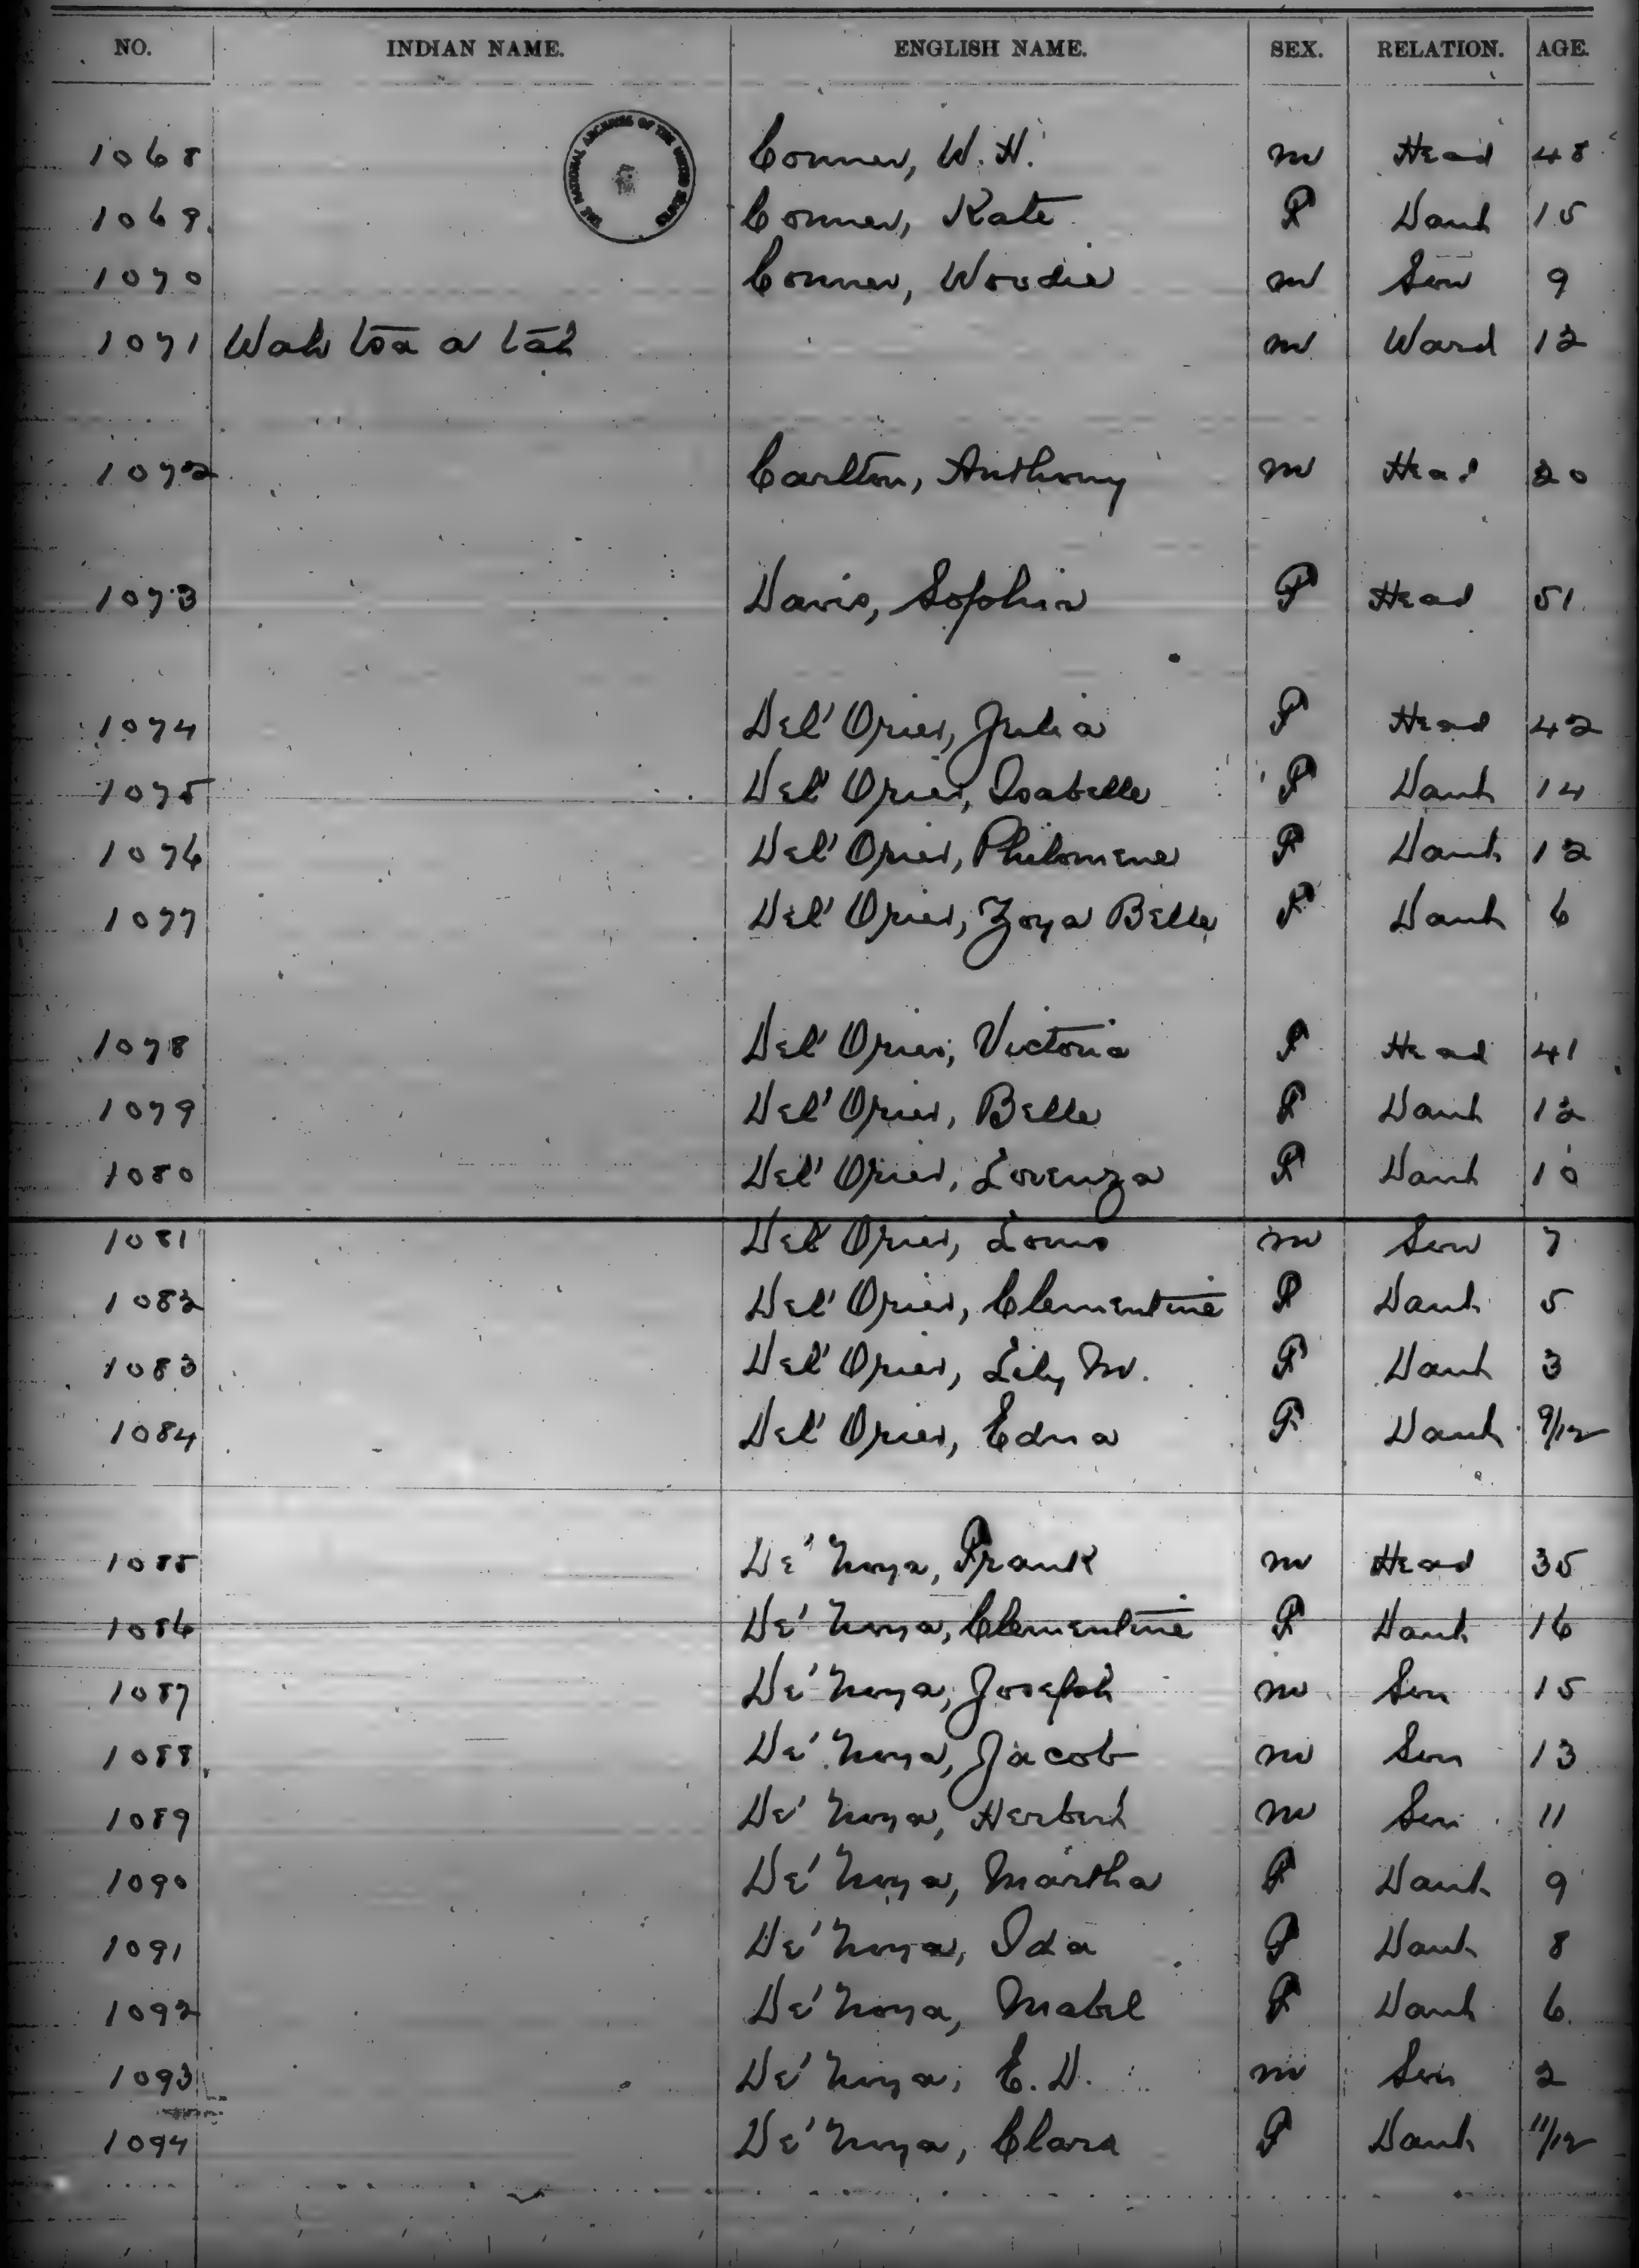 NO. INDIAN NAME. ENGLISH NAME. SEX. RELATION. AGE.
THE NATIONAL ARCHIVES OF THE UNITED STATES
1068 Conner, W. H. M Head 48
1069 Conner, Kate F Daut 15
1070 Conner, Woodie M Son 9
1071 Wah tsa a tah M Ward 12
1072 Carlton, Anthony M Head 20
1073 Davis, Sophia F Head 51
1074 Del' Orier, Julia F Head 42
1075 Del' Orier, Isabelle F Daut 14
1076 Del' Orier, Philomene F Daut 12
1077 Del' Orier, Zoya Belle F Daut 6
1078 Del' Orier, Victoria F Head 41
1079 Del' Orier, Belle F Daut 12
1080 Del' Orier, Lorenza F Daut 10
1081 Del' Orier, Louis M Son 7
1082 Del' Orier, Clementine F Daut 5
1083 Del' Orier, Lily M. F Daut 3
1084 Del' Orier, Edna F Daut 9/12
1085 De' Noya, Frank M Head 35
1086 De' Noya, Clementine F Daut 16
1087 De' Noya, Joseph M Son 15
1088 De' Noya, Jacob M Son 13
1089 De' Noya, Herbert M Son 11
1090 De' Noya, Martha F Daut 9
1091 De' Noya, Ida F Daut 8
1092 De' Noya, Mabel F Daut 6
1093 De' Noya, E. D. M Son 2
1094 De' Noya, Clara F Daut 11/12